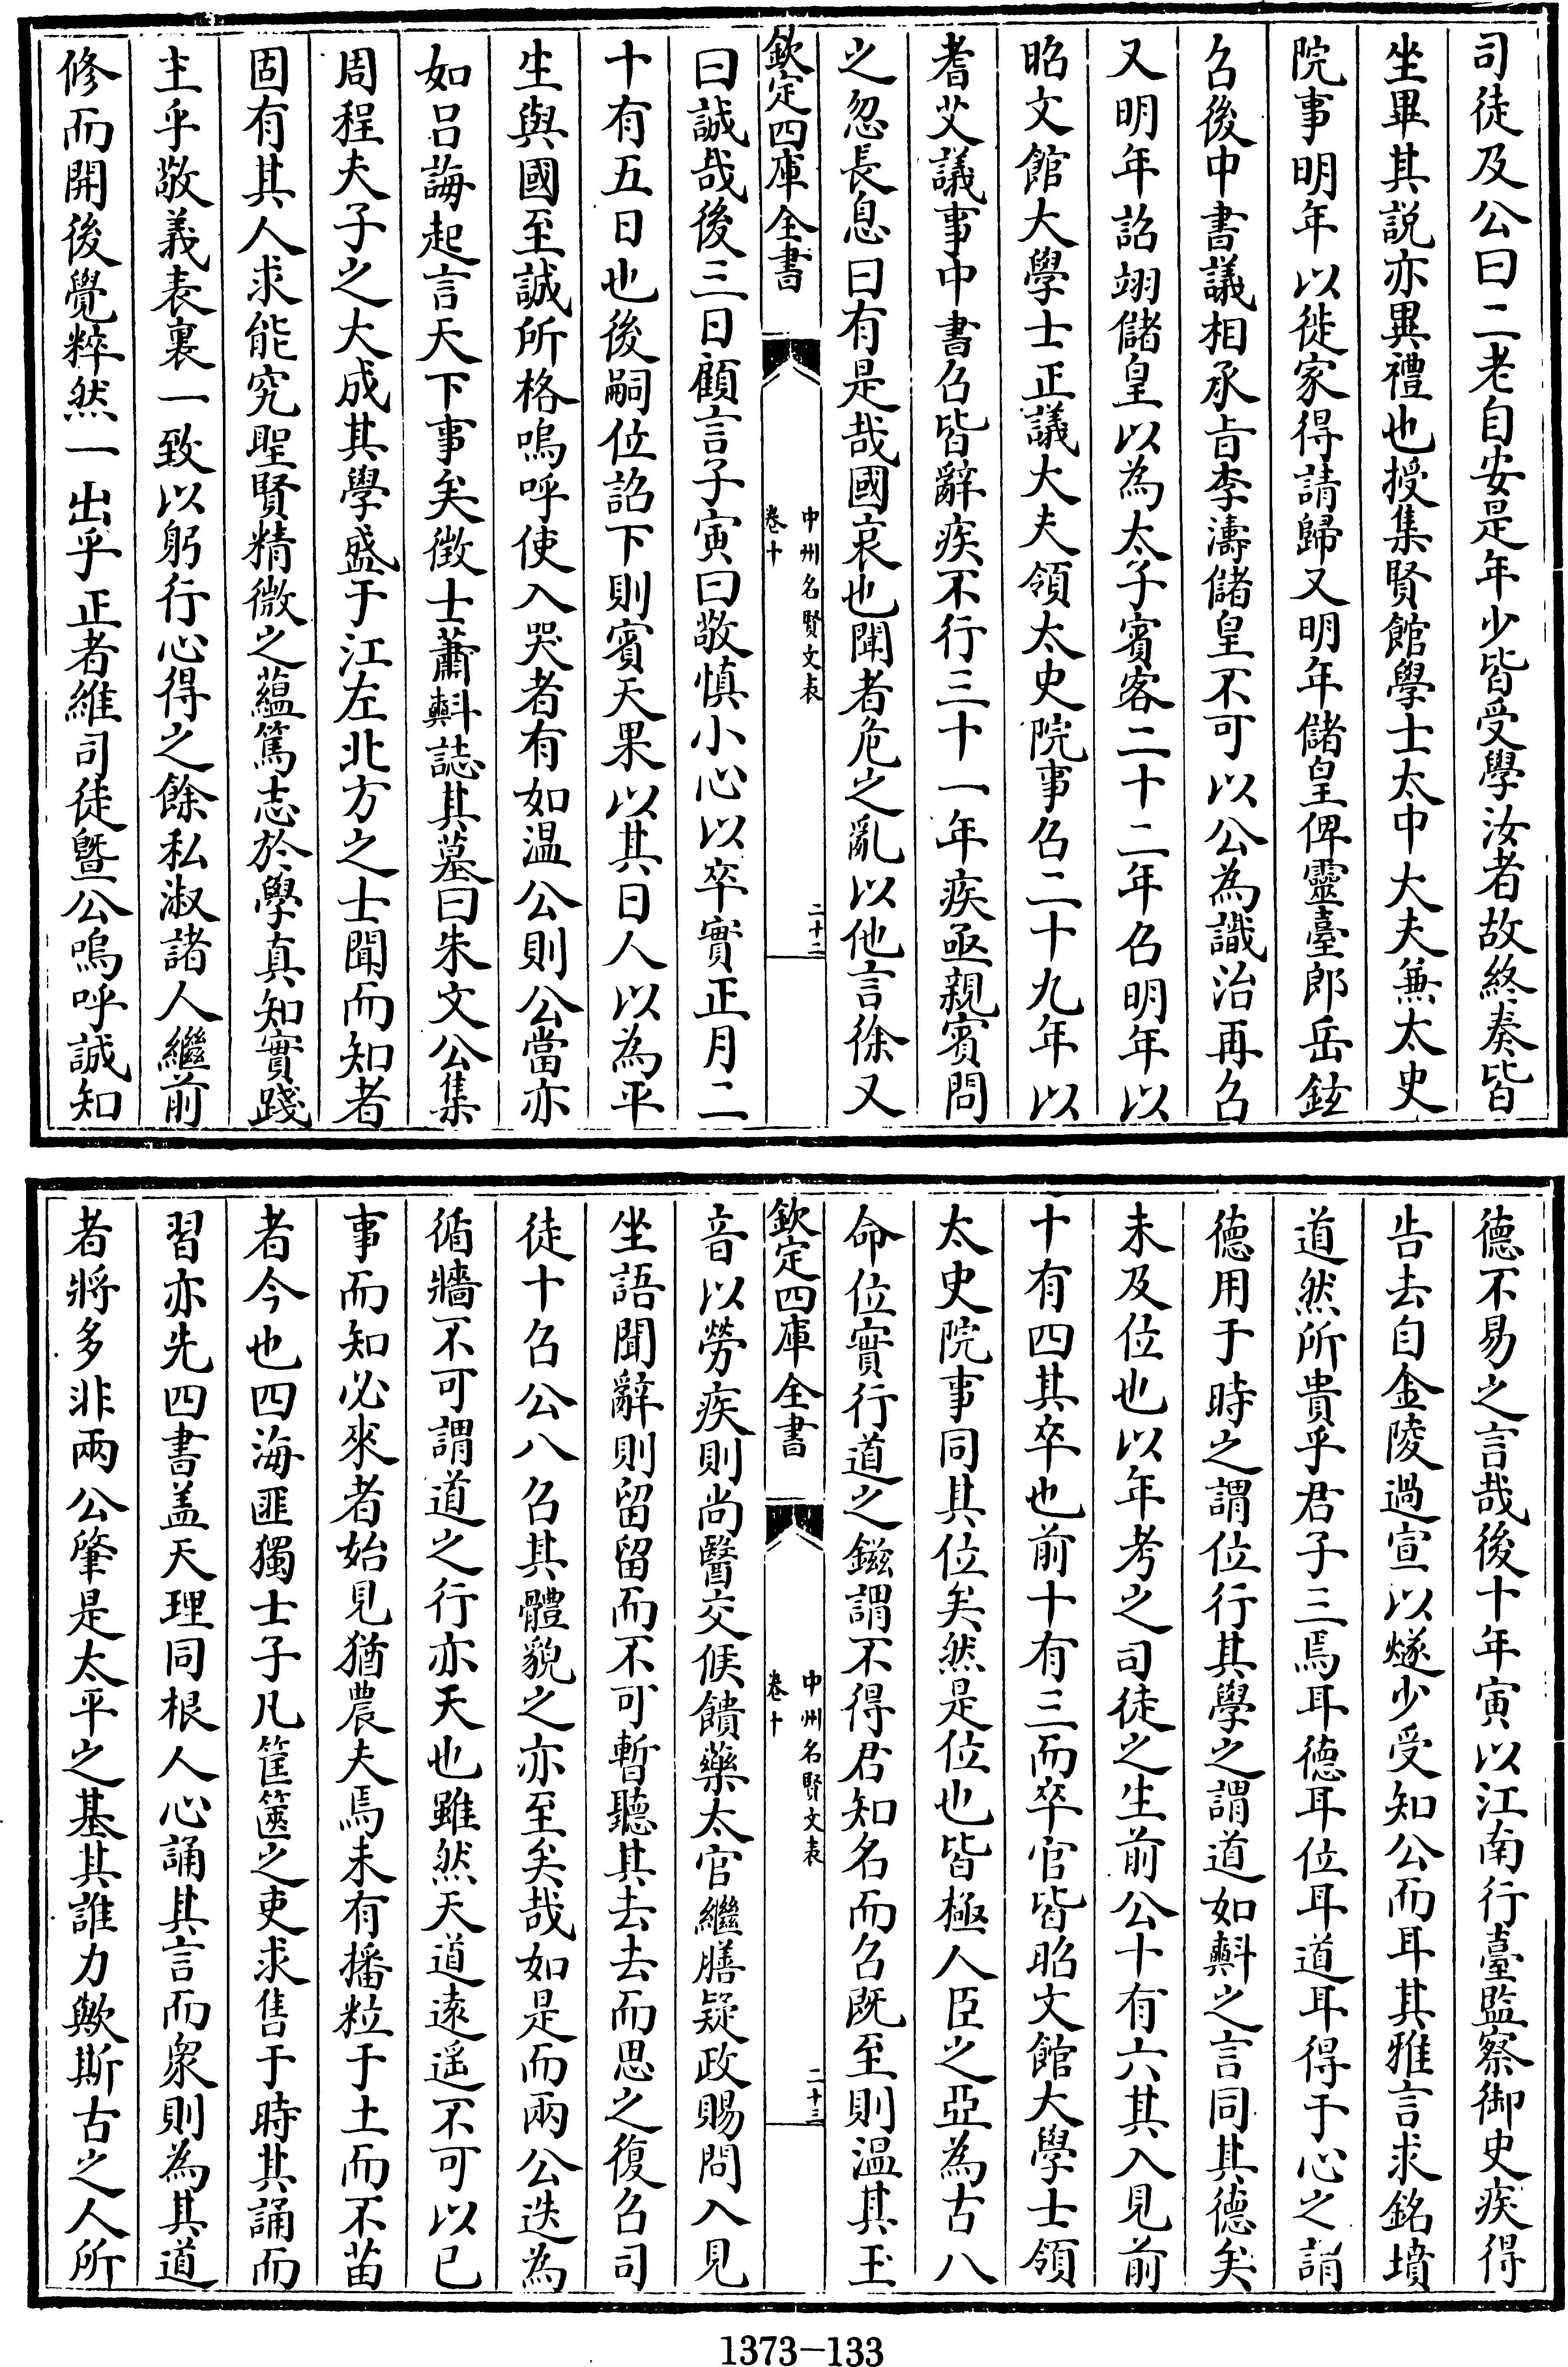 司徒及公曰二老自安是年少皆受學汝者故終奏皆
坐畢其説亦異禮也授集賢館學士太中大夫兼太史
院事明年以徙家得請歸又明年儲皇俾靈臺郎岳鉉
召後中書議相承㫖李濤儲皇不可以公為識治再召
又明年詔翊儲皇以為太子賓客二十二年召明年以
昭文館大學士正議大夫領太史院事召二十九年以
耆艾議事中書召皆辭疾不行三十一年疾亟親賓問
之忽長息曰有是哉國哀也聞者危之亂以他言徐又
欽定四庫全書
中州名賢文表
卷十
二十二
曰誠哉後三日顧言子寅曰敬慎小心以卒實正月二
十有五日也後嗣位詔下則賓天果以其日人以為平
生與國至誠所格嗚呼使入哭者有如温公則公當亦
如吕誨起言天下事矣徴士蕭㪺誌其墓曰朱文公集
周程夫子之大成其學盛于江左北方之士聞而知者
固有其人求能究聖賢精微之藴篤志於學真知實踐
主乎敬義表裏一致以躬行心得之餘私淑諸人繼前
修而開後覺粹然一出乎正者維司徒曁公嗚呼誠知
德不易之言哉後十年寅以江南行臺監察御史疾得
告去自金陵過宣以燧少受知公而耳其雅言求銘墳
道然所貴乎君子三焉耳德耳位耳道耳得于心之謂
德用于時之謂位行其學之謂道如㪺之言同其德矣
未及位也以年考之司徒之生前公十有六其入見前
十有四其卒也前十有三而卒官皆昭文館大學士領
太史院事同其位矣然是位也皆極人臣之亞為古八
命位實行道之鎡謂不得君知名而召既至則温其玉
欽定四庫全書
中州名賢文表
卷十
二十三
音以勞疾則尚醫交候饋藥太官繼膳疑政賜問入見
坐語聞辭則留留而不可暫聽其去去而思之復召司
徒十召公八召其體貌之亦至矣哉如是而兩公迭為
循牆不可謂道之行亦天也雖然天道遠遥不可以已
事而知必來者始見猶農夫焉未有播粒于土而不苗
者今也四海匪獨士子凡筐篋之吏求售于時其誦而
習亦先四書盖天理同根人心誦其言而衆則為其道
者將多非兩公肇是太平之基其誰力歟斯古之人所
1373—133